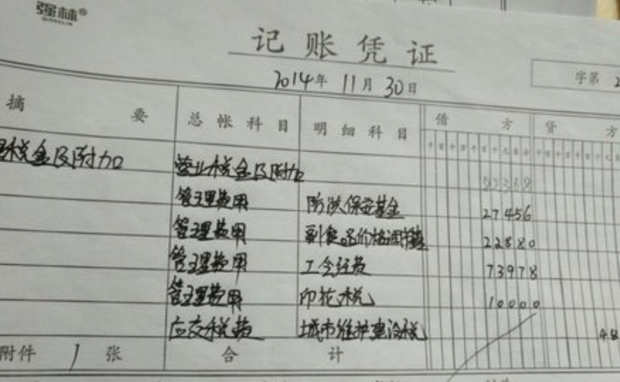 强林®
记账凭证
2014年 11月 30日
字第
摘 要 总帐科目 明细科目 借 方 贷 方
税金及附加 营业税金及附加
管理费用 防洪保安基金 27456
管理费用 副食品价格调节基金 22880
管理费用 工会经费 73978
管理费用 印花税 10000
应交税费 城市维护建设税
附件 1 张 合 计